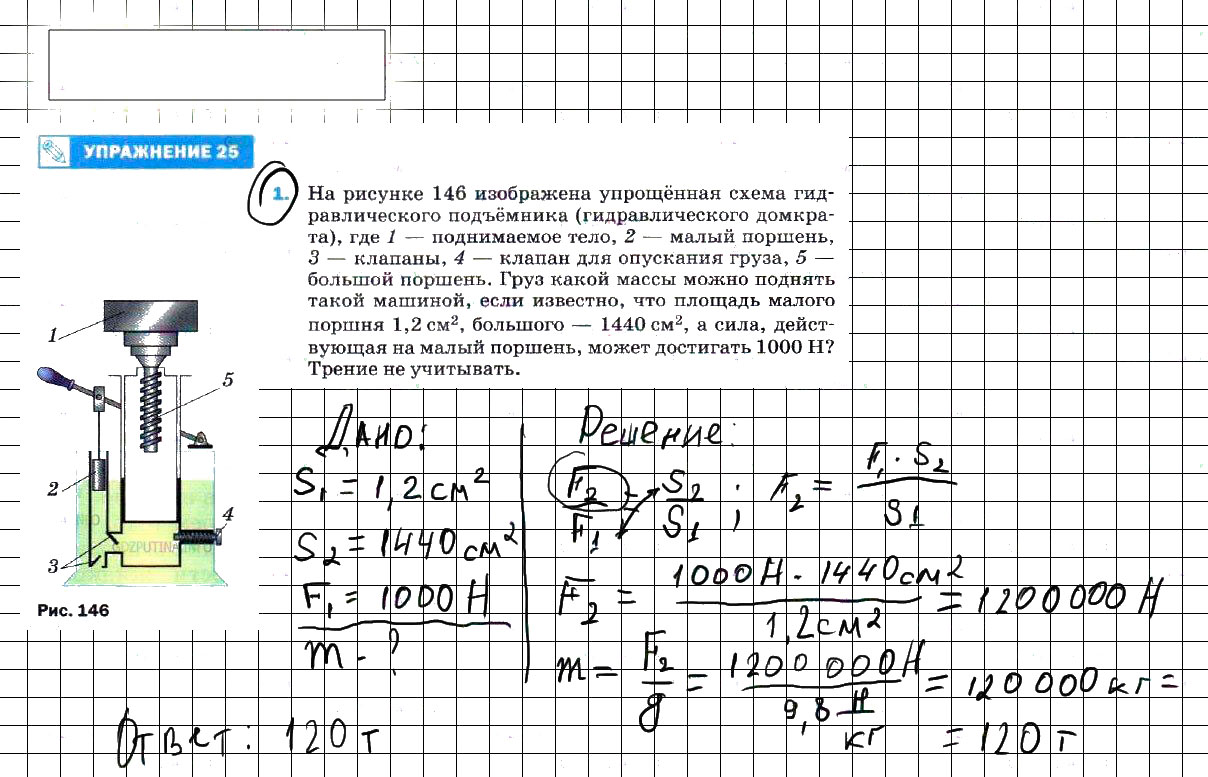 УПРАЖНЕНИЕ 25
1. На рисунке 146 изображена упрощённая схема гид-
равлического подъёмника (гидравлического домкра-
та), где 1 — поднимаемое тело, 2 — малый поршень,
3 — клапаны, 4 — клапан для опускания груза, 5 —
большой поршень. Груз какой массы можно поднять
такой машиной, если известно, что площадь малого
поршня 1,2 см², большого — 1440 см², а сила, дейст-
вующая на малый поршень, может достигать 1000 Н?
Трение не учитывать.
1
5
2
4
3
GDZPUTINA.INFO
Рис. 146
Дано:
S₁ = 1,2 см²
S₂ = 1440 см²
F₁ = 1000 Н
m - ?
Решение:
F₂/F₁ = S₂/S₁ ; F₂ = F₁ · S₂ / S1
F₂ = 1000 Н · 1440 см² / 1,2 см² = 1200 000 Н
m = F₂/g = 1200 000 Н / 9,8 Н/кг = 120 000 кг =
= 120 т
Ответ: 120 т